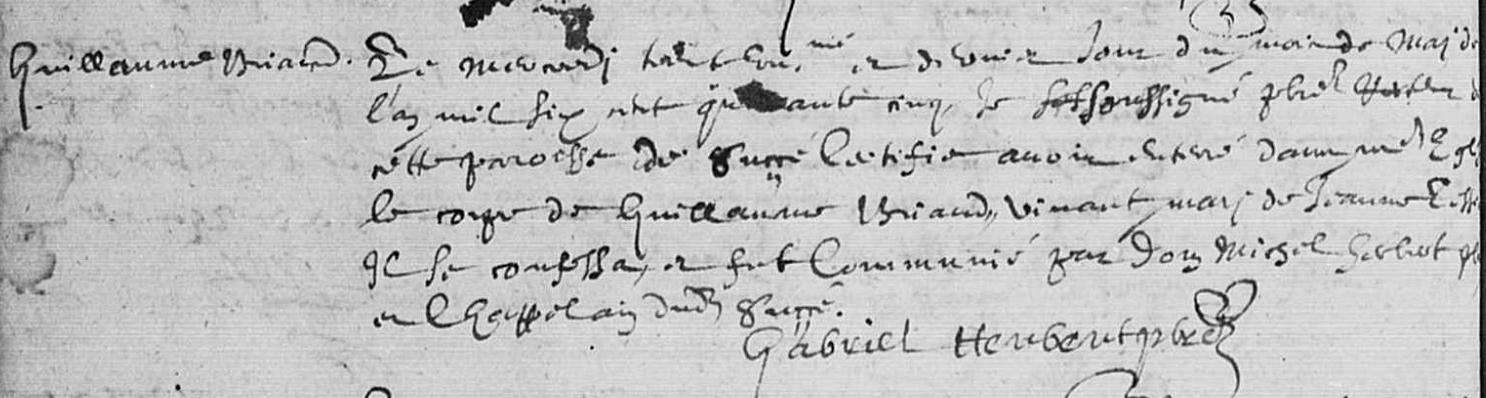 Guillaume Briand.
Le mercredi trente uni.me et dernier jour du mois de Maj de
l'an mil six cent quarante cinq Je soussigné pbre Recteur
cette paroesse de Succé Certifie avoir enterré dans md Egl
le corps de Guillaume Briand, vivant mary de Jeanne
Il se confessa, et fut Communié par Dom Michel Herbert p
et Chappelain dud Succé.
Gabriel Herbert pbre